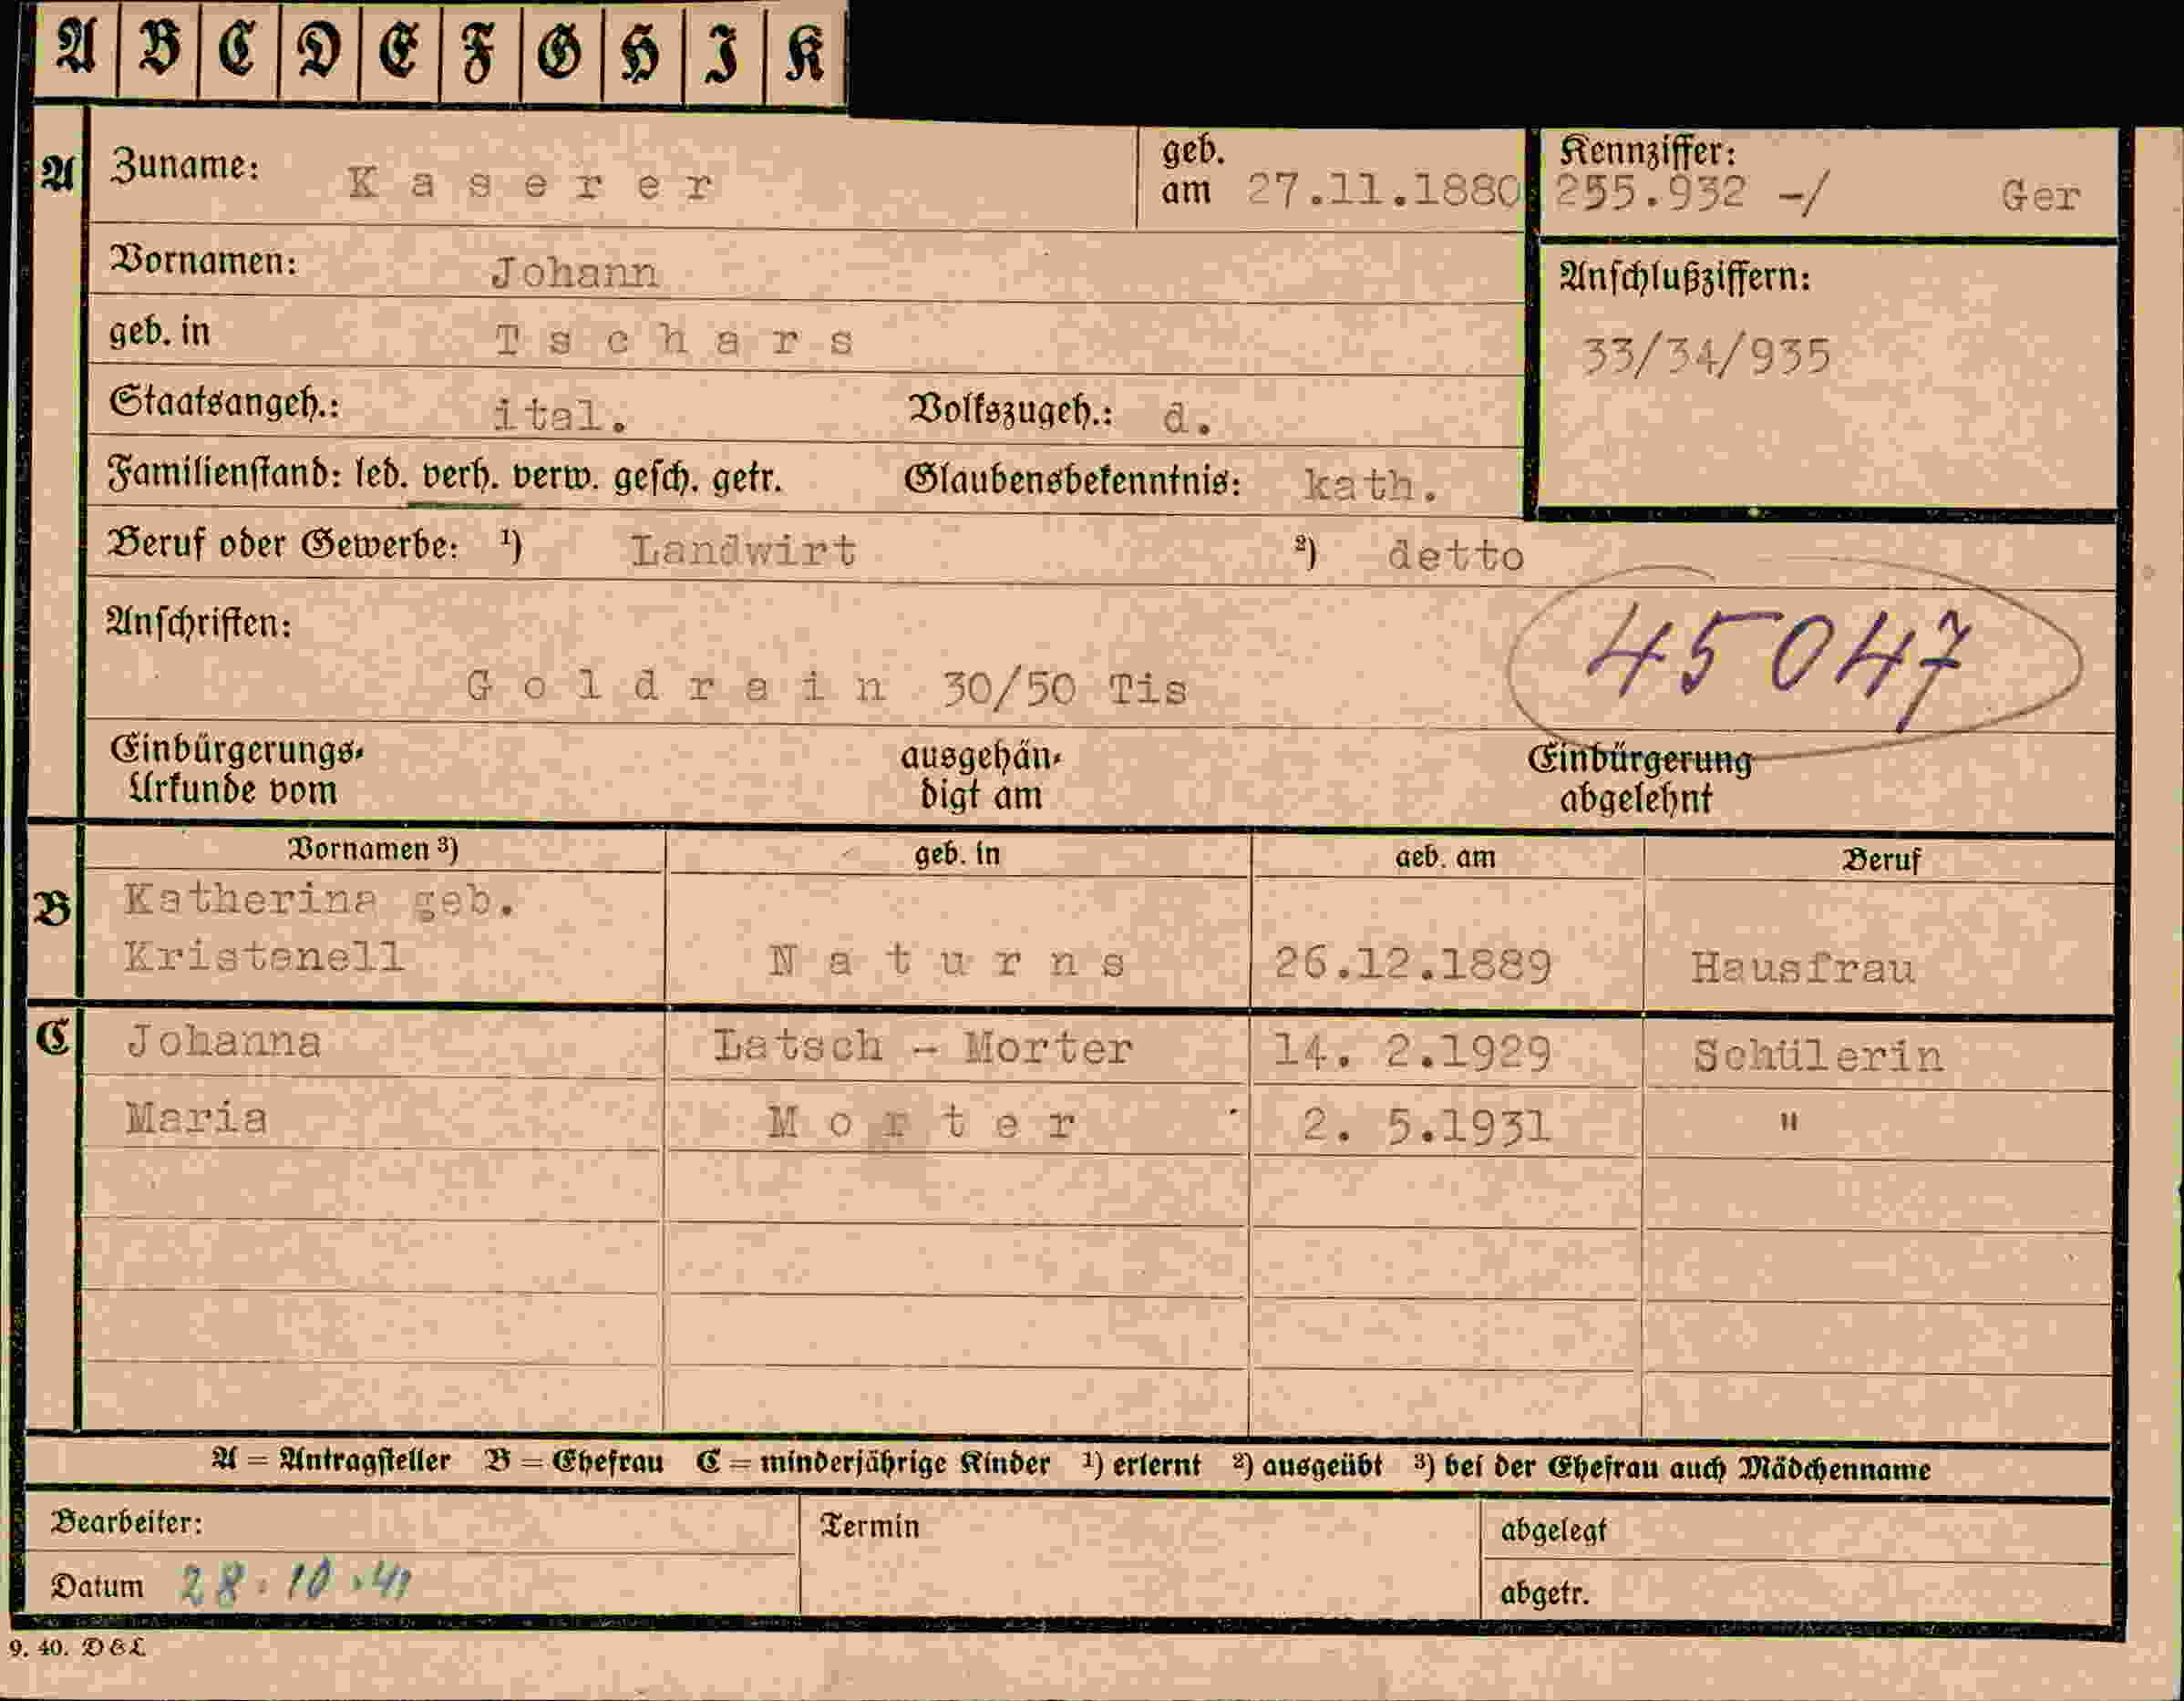 A B C D E F G H I K
A Zuname: Kaserer geb. am 27.11.1880 Kennziffer: 255.932 -/ Ger
Vornamen: Johann Anschlußziffern:
geb. in Tschars 33/34/935
Staatsangeh.: ital. Volkszugeh.: d.
Familienstand: led. verh. verw. gesch. getr. Glaubensbekenntnis: kath.
Beruf oder Gewerbe: ¹) Landwirt ²) detto
Anschriften: 45047
Goldrain 30/50 Tis
Einbürgerungs- ausgehän- Einbürgerung
Urkunde vom digt am abgelehnt
Vornamen ³) geb. in geb. am Beruf
B Katherina geb.
Kristanell Naturns 26.12.1889 Hausfrau
C Johanna Latsch - Morter 14. 2.1929 Schülerin
Maria Morter 2. 5.1931 "
A = Antragsteller B = Ehefrau C = minderjährige Kinder ¹) erlernt ²) ausgeübt ³) bei der Ehefrau auch Mädchenname
Bearbeiter: Termin abgelegt
Datum 28.10.41 abgetr.
9. 40. D&L